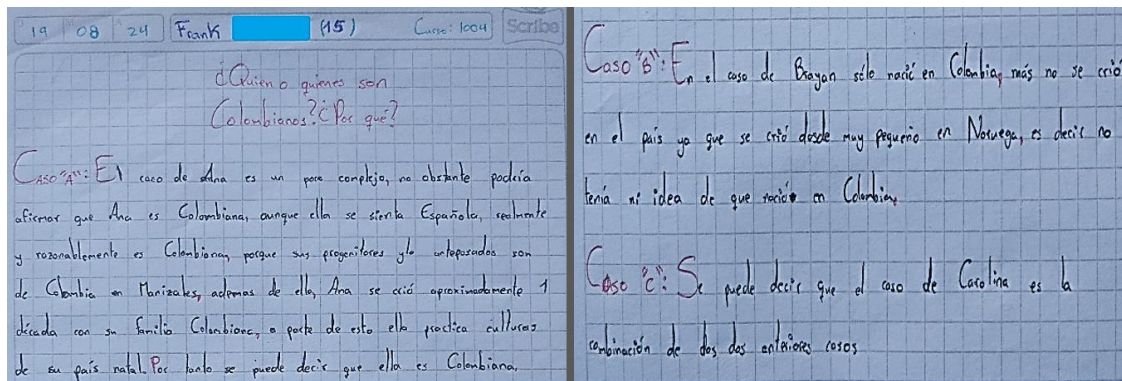 19 08 24 Frank (15) Curso: 1004 Scribe
¿Quien o quienes son
Colombianos? ¿Por qué?
Caso "A": El caso de Ana es un poco complejo, no obstante podría
afirmar que Ana es Colombiana, aunque ella se sienta Española, realmente
y razonablemente es Colombiana, porque sus progenitores y/o antepasados son
de Colombia en Manizales, además de ello, Ana se crió aproximadamente 1
década con su familia Colombiana, a parte de esto ella practica culturas
de su país natal. Por tanto se puede decir que ella es Colombiana,
Caso "B": En el caso de Brayan sólo nació en Colombia, más no se crió
en el país ya que se crió desde muy pequeño en Noruega, es decir no
tenía ni idea de que nació en Colombia,
Caso "C": Se puede decir que el caso de Carolina es la
combinación de dos dos anteriores casos